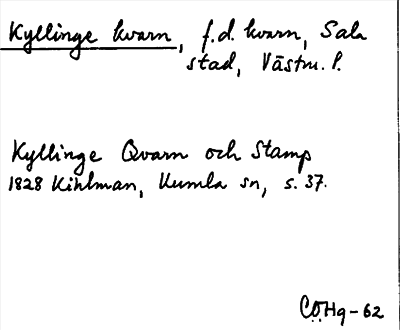 Kyllinge kvarn, f.d. kvarn, Sala
stad, Västm. l.
Kyllinge Qvarn och Stamp
1828 Kihlman, Kumla sn, s. 37.
CÖHg-62